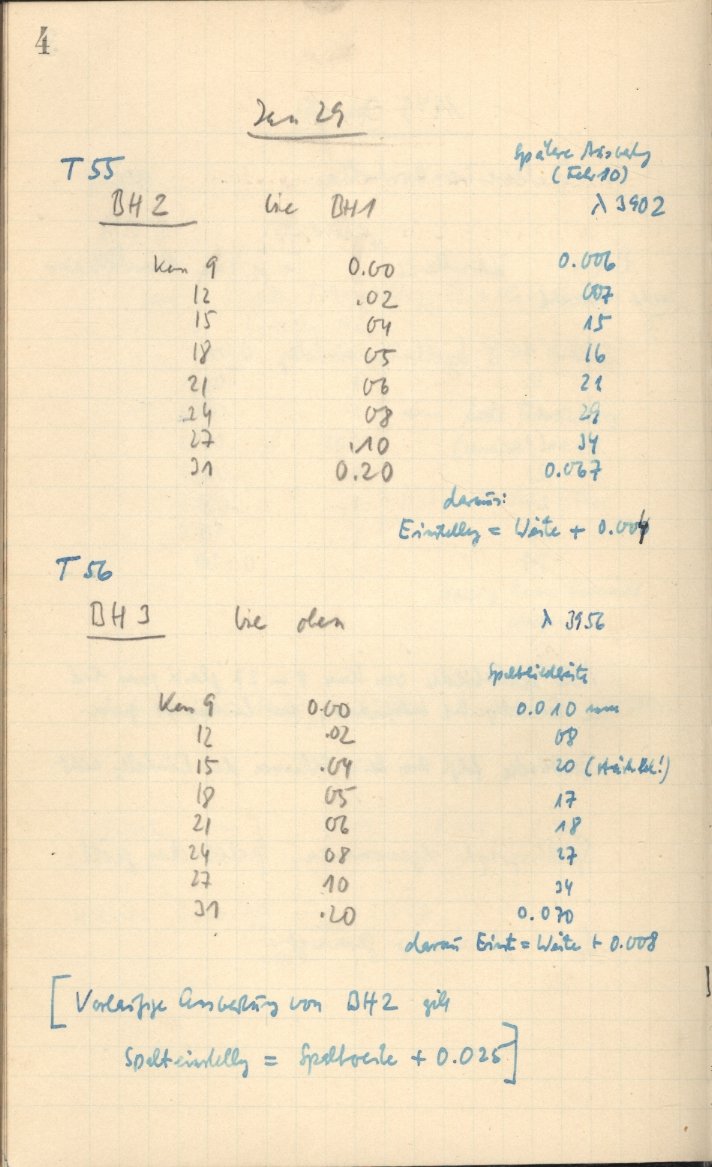 4
Jan 29
T 55
Spätere Auswertg
(Febr 10)
BH 2 wie BH 1 λ 3902
Kan 9 0.00 0.006
12 .02 007
15 04 15
18 05 16
21 06 21
24 08 29
27 .10 34
31 0.20 0.067
daraus:
Einstellg = Weite + 0.004
T 56
BH 3 wie oben λ 3956
Kan 9 0.00 0.010 mm
12 .02 08
15 .04 20
18 05 17
21 06 18
24 08 27
27 10 34
31 .20 0.070
daraus Einst = Weite + 0.008
[Vorläufige Auswertung von BH 2 gibt
Spalteinstellg = Spaltweite + 0.025]